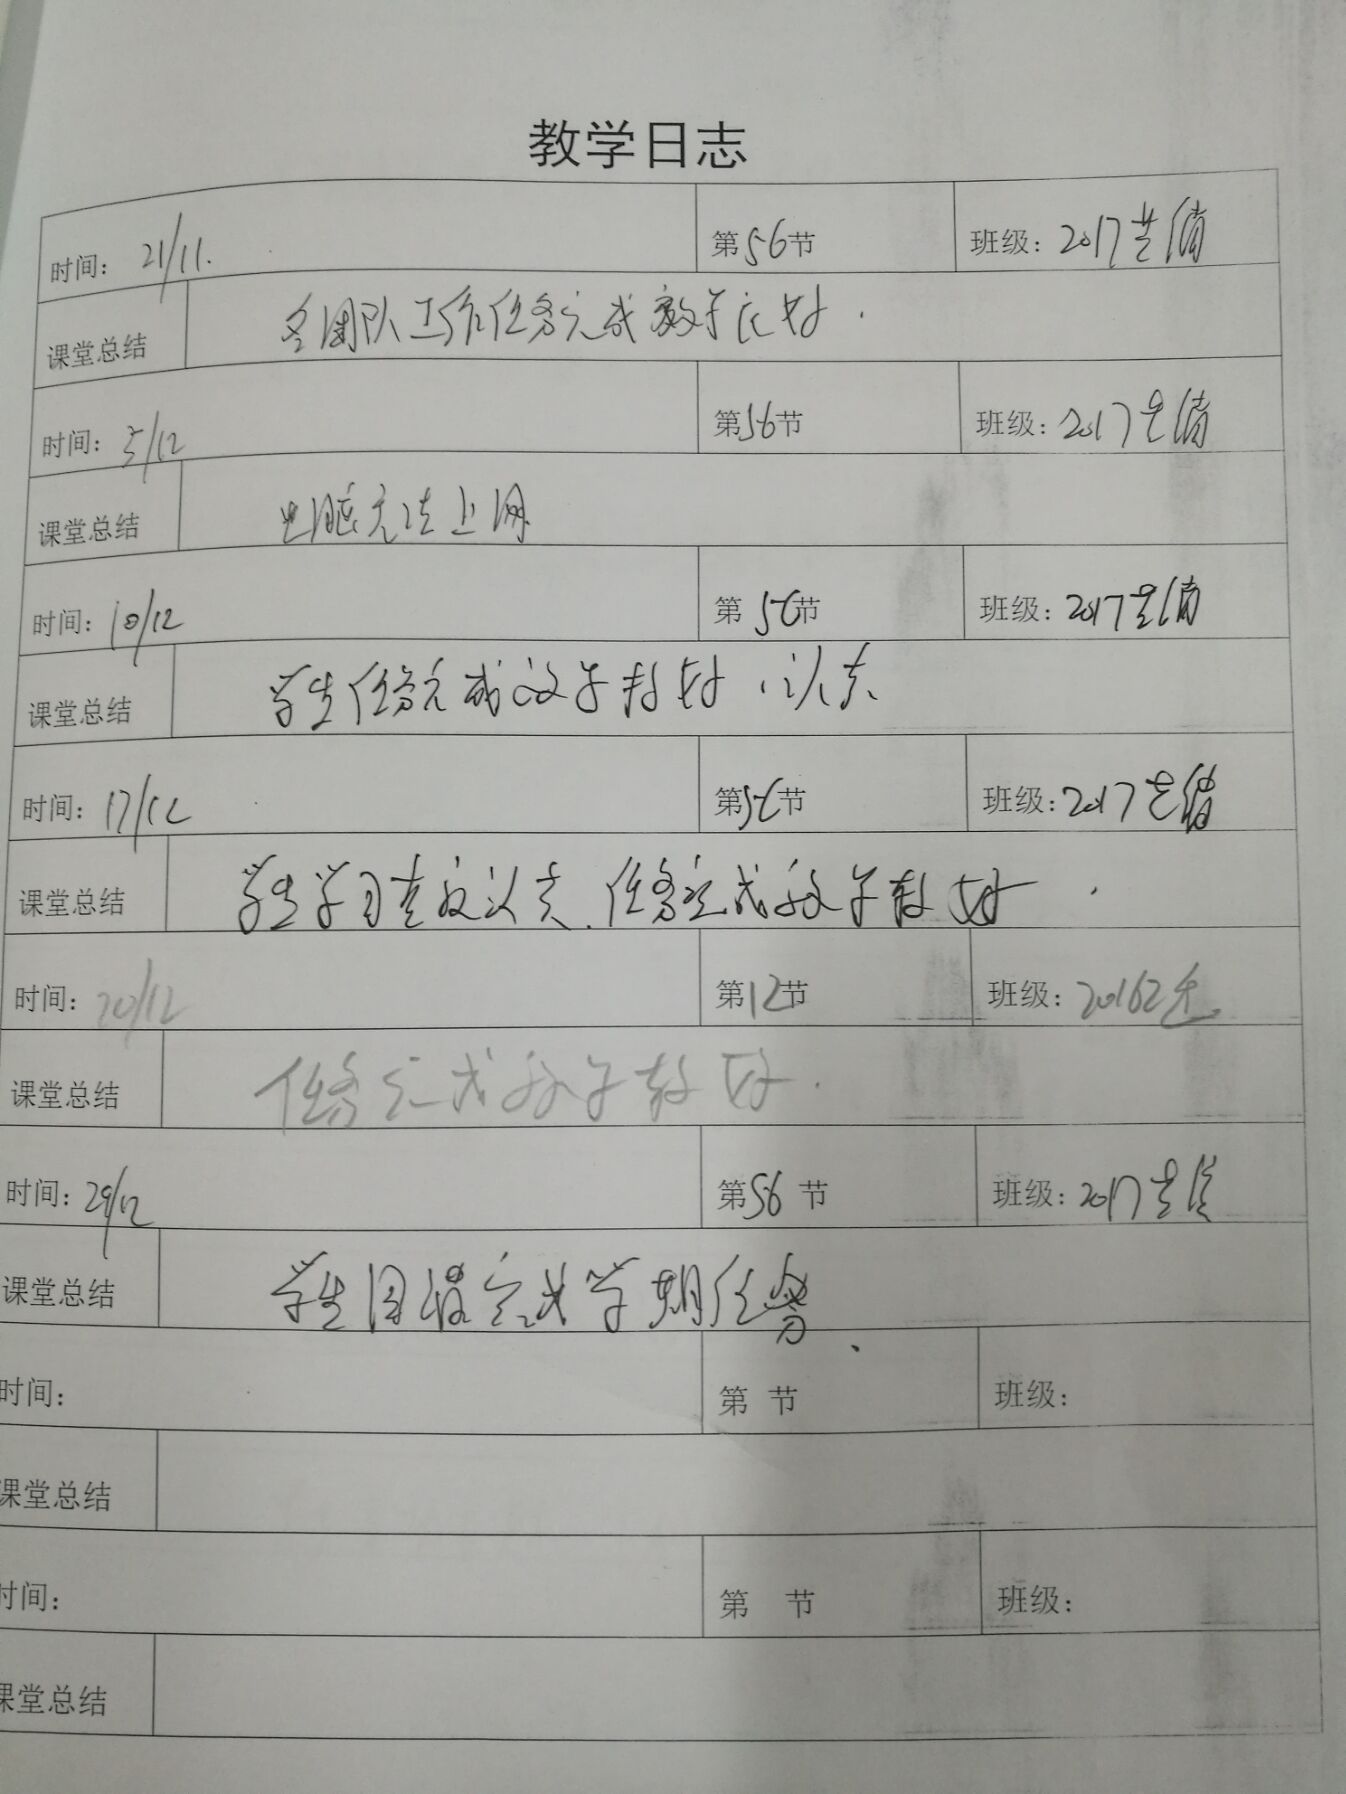 教学日志
时间: 21/11. 第56节 班级: 2017
课堂总结 各团队工作任务完成效率较好.
时间: 5/12 第56节 班级: 2017
课堂总结 电脑无法上网
时间: 10/12 第56节 班级: 2017
课堂总结 学生任务完成效率较好，认真
时间: 17/12 第56节 班级: 2017
课堂总结 学生学习认真、任务完成效率较好.
时间: 20/12 第12节 班级: 20162
课堂总结 任务完成效率较好.
时间: 29/12 第56节 班级: 2017
课堂总结 学生圆满完成学期任务、
时间: 第 节 班级:
课堂总结
时间: 第 节 班级:
课堂总结